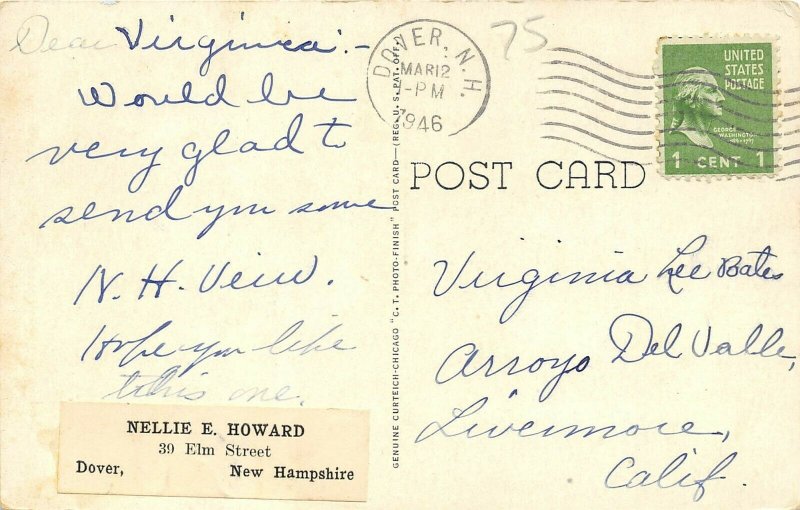 Dear Virginia:-
Would be
very glad to
send you some
N. H. Veiw.
Hope you like
this one.
NELLIE E. HOWARD
39 Elm Street
Dover, New Hampshire
GENUINE CURTEICH-CHICAGO "C. T. PHOTO-FINISH" POST CARD—(REG. U. S. PAT. OFF.)
DOVER, N.H.
MAR 12
-PM
1946
75
UNITED
STATES
POSTAGE
GEORGE
WASHINGTON
1 CENT 1
POST CARD
Virginia Lee Bates
Arroyo Del Valle,
Livermore,
Calif.